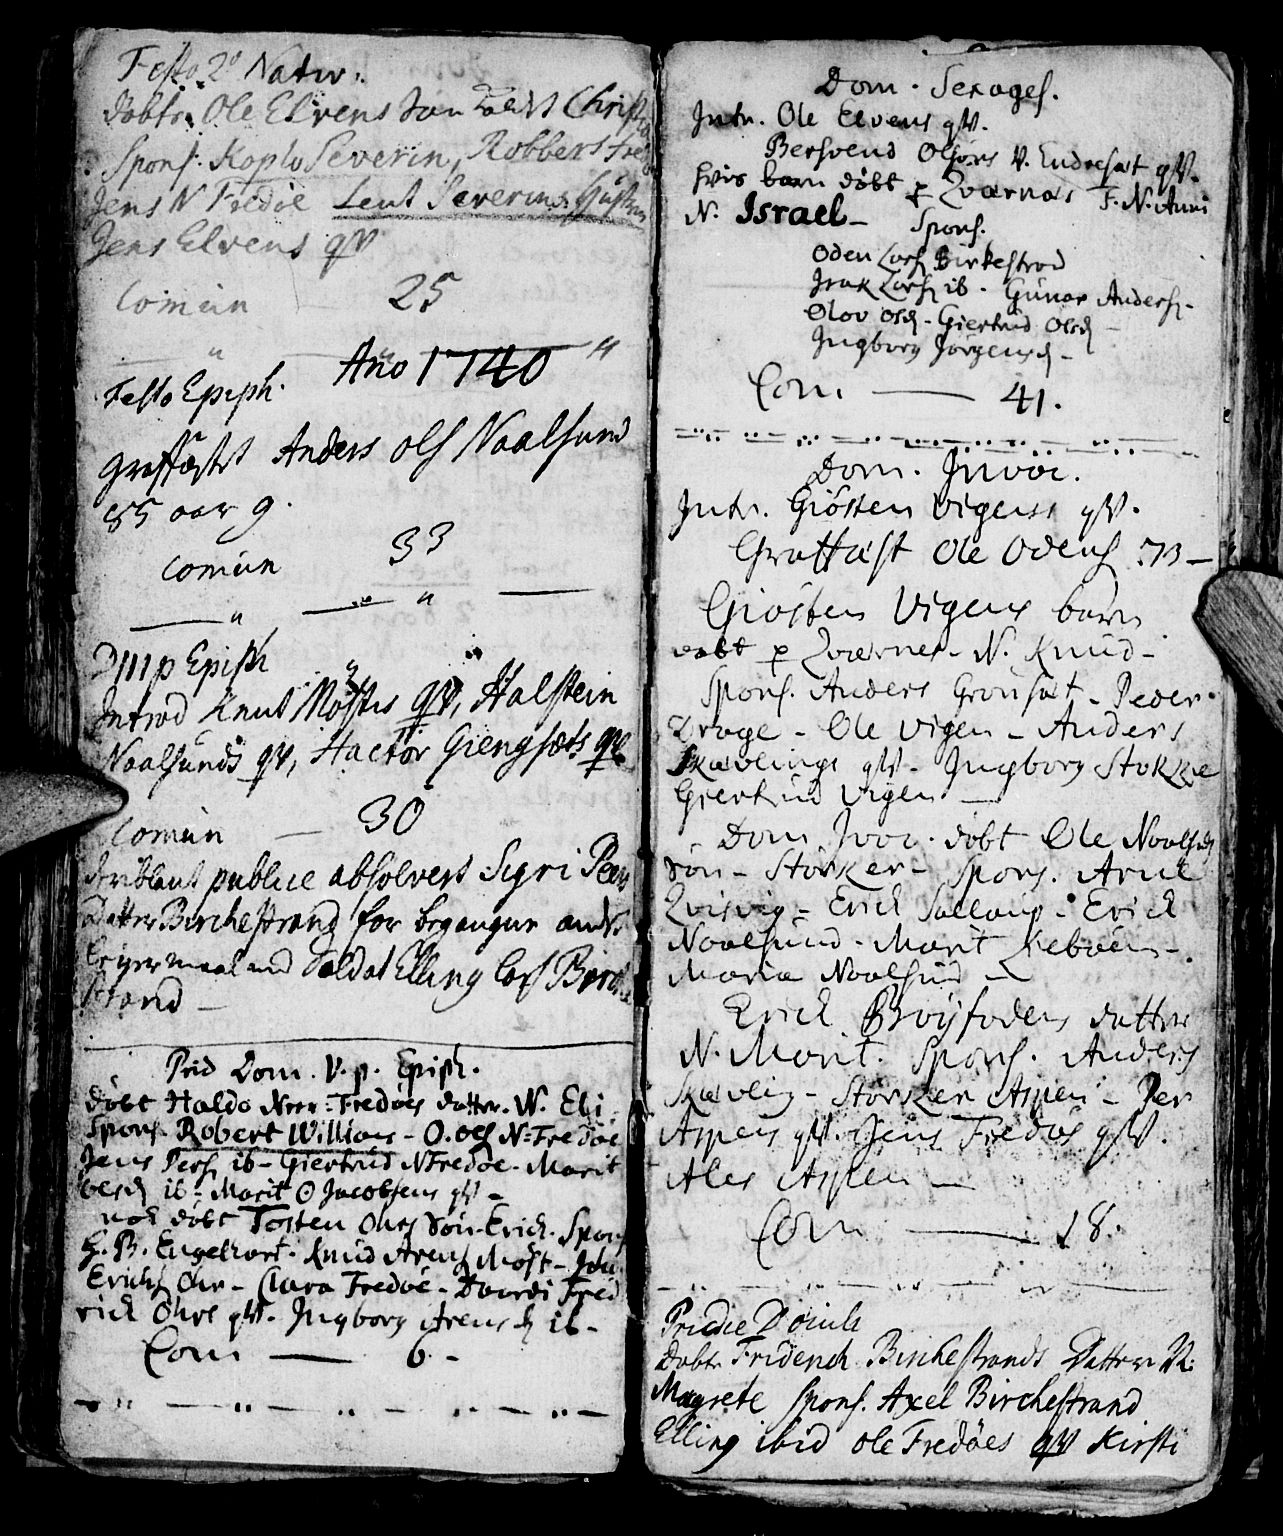 Festo 2° Nativ:
døbt Ole Elvens Søn Christ
Spons. Severin, Robbert Fred
Jens N Fredøe Leut Severins
Jens Elvens qV
Comun 25
Año 1740
Festo Epiph.
graffæstet Anders Ols Naalsund
85 aar g.
Comun 33
D III p Epiph
Introd Knut Møstes qV, Halstein
Naalsunds qV, Hactor Giengsets qV
Comun — 30
publice absolvert Sigri Peers
Datter Birchestrand for begangne
leyermaal med Soldat Elling Lars Birche
strand —
Prid Dom. V. p. Epiph.
døbt Haldo Nerr-Fredøes datter. N. Eli
Spons. Robert Willians - O. Ols N-Fredøe
Jens Pers ib - Giertrud N Fredøe - Marit
ib - Marit O Jacobsens qV -
nok døbt Tosten Ohrs Søn - Erich. Spons
H. B. Engelhart. Knud Arens Møst - John
Erichs Ohr - Clara Fredøe - Dordi Fred
rich Ohrs qV. Ingborg Arensd ib -
Com — 6. -
Dom. Sexages.
Intr. Ole Elvens qV.
Bersvend Olsøns V. Endreset qV.
hvis barn døbt p Qværnæs F. N. Anni
N. Israel - Spons.
Oden Lars Birkestrand
Isak Lars ib - Gunar Anders -
Olov Olsd - Giertrud Olsd -
Ingborg Jørgensd -
Com — 41.
Dom. Invoc.
Intr. Giøsten Vigens qV.
Graffæst Ole Odens 73 -
Giøsten Vigens barn
døbt p Qværnes - N. Knud -
Spons. Anders Gronset - Peder
Drage - Ole Vigen - Anders
Skævlings qV - Ingborg Stokke
Giertrud Vigen —
Dom Invoc. døbt Ole Naalsunds
Søn - Størker - Spons. Arne
Qvisvig - Erich Sollaup - Erich
Naalsund - Marit Qvebøen -
Maria Naalsund —
Erich Bøifodens datter
N. Marit. Spons. Anders
Skævlig - Størker Aspen - Per
Aspens qV. Jens Fredøs qV.
Ales Aspen —
Com — 18.
Pridie Dom
Døbt Friderich Birchestrands Datter N.
Magrete Spons. Axel Birchestrand
Elling ibid Ole Fredøes qV Kirsti